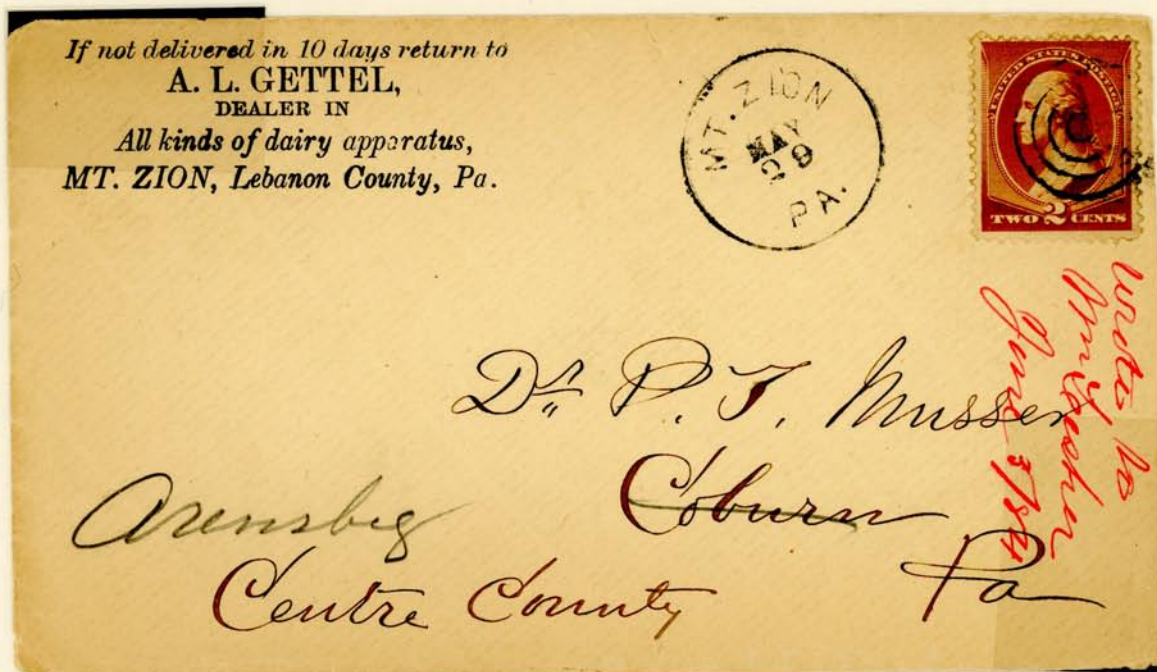 If not delivered in 10 days return to
A. L. GETTEL,
DEALER IN
All kinds of dairy apparatus,
MT. ZION, Lebanon County, Pa.
MT. ZION
MAY
29
PA.
UNITED STATES POSTAGE
TWO 2 CENTS
Dr P. T. Musser
Coburn
Arensbeg
Centre County
Pa
wrote to
June 3/84